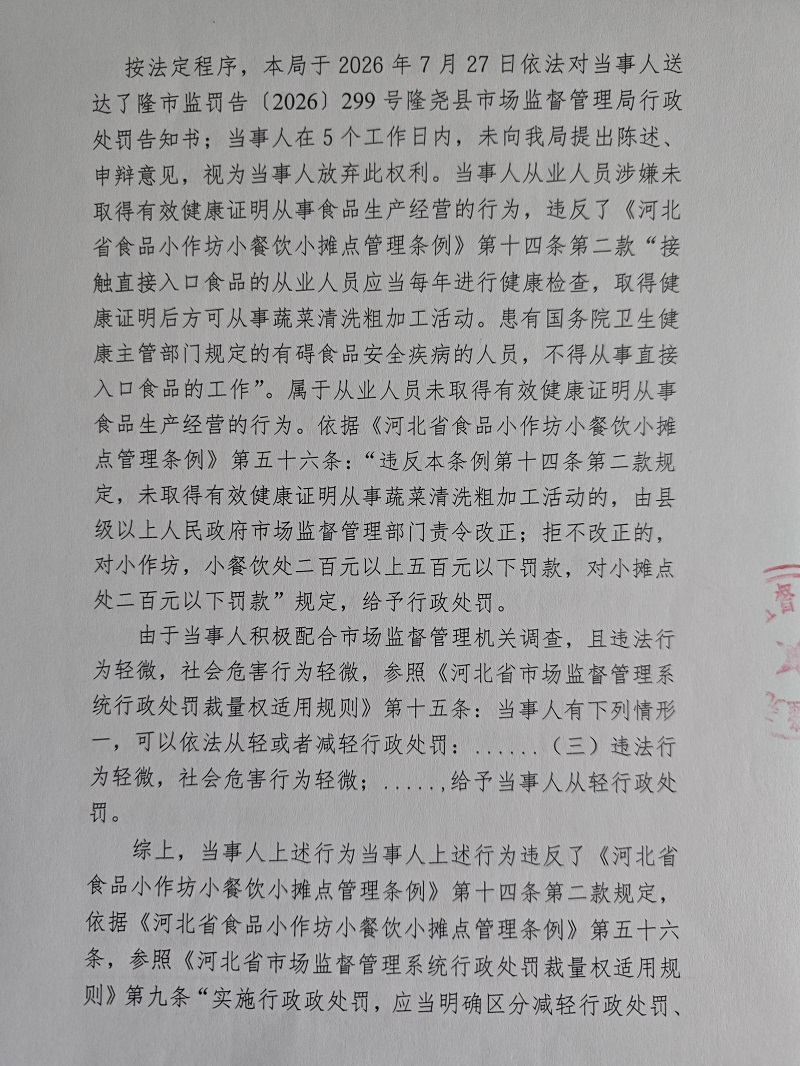 按法定程序，本局于 2026 年 7 月 27 日依法对当事人送
达了隆市监罚告〔2026〕299 号隆尧县市场监督管理局行政
处罚告知书；当事人在 5 个工作日内，未向我局提出陈述、
申辩意见，视为当事人放弃此权利。当事人从业人员涉嫌未
取得有效健康证明从事食品生产经营的行为，违反了《河北
省食品小作坊小餐饮小摊点管理条例》第十四条第二款“接
触直接入口食品的从业人员应当每年进行健康检查，取得健
康证明后方可从事蔬菜清洗粗加工活动。患有国务院卫生健
康主管部门规定的有碍食品安全疾病的人员，不得从事直接
入口食品的工作”。属于从业人员未取得有效健康证明从事
食品生产经营的行为。依据《河北省食品小作坊小餐饮小摊
点管理条例》第五十六条：“违反本条例第十四条第二款规
定，未取得有效健康证明从事蔬菜清洗粗加工活动的，由县
级以上人民政府市场监督管理部门责令改正；拒不改正的，
对小作坊，小餐饮处二百元以上五百元以下罚款，对小摊点
处二百元以下罚款”规定，给予行政处罚。
由于当事人积极配合市场监督管理机关调查，且违法行
为轻微，社会危害行为轻微，参照《河北省市场监督管理系
统行政处罚裁量权适用规则》第十五条：当事人有下列情形
一，可以依法从轻或者减轻行政处罚：......（三）违法行
为轻微，社会危害行为轻微；.....,给予当事人从轻行政处
罚。
综上，当事人上述行为当事人上述行为违反了《河北省
食品小作坊小餐饮小摊点管理条例》第十四条第二款规定，
依据《河北省食品小作坊小餐饮小摊点管理条例》第五十六
条，参照《河北省市场监督管理系统行政处罚裁量权适用规
则》第九条“实施行政政处罚，应当明确区分减轻行政处罚、
督